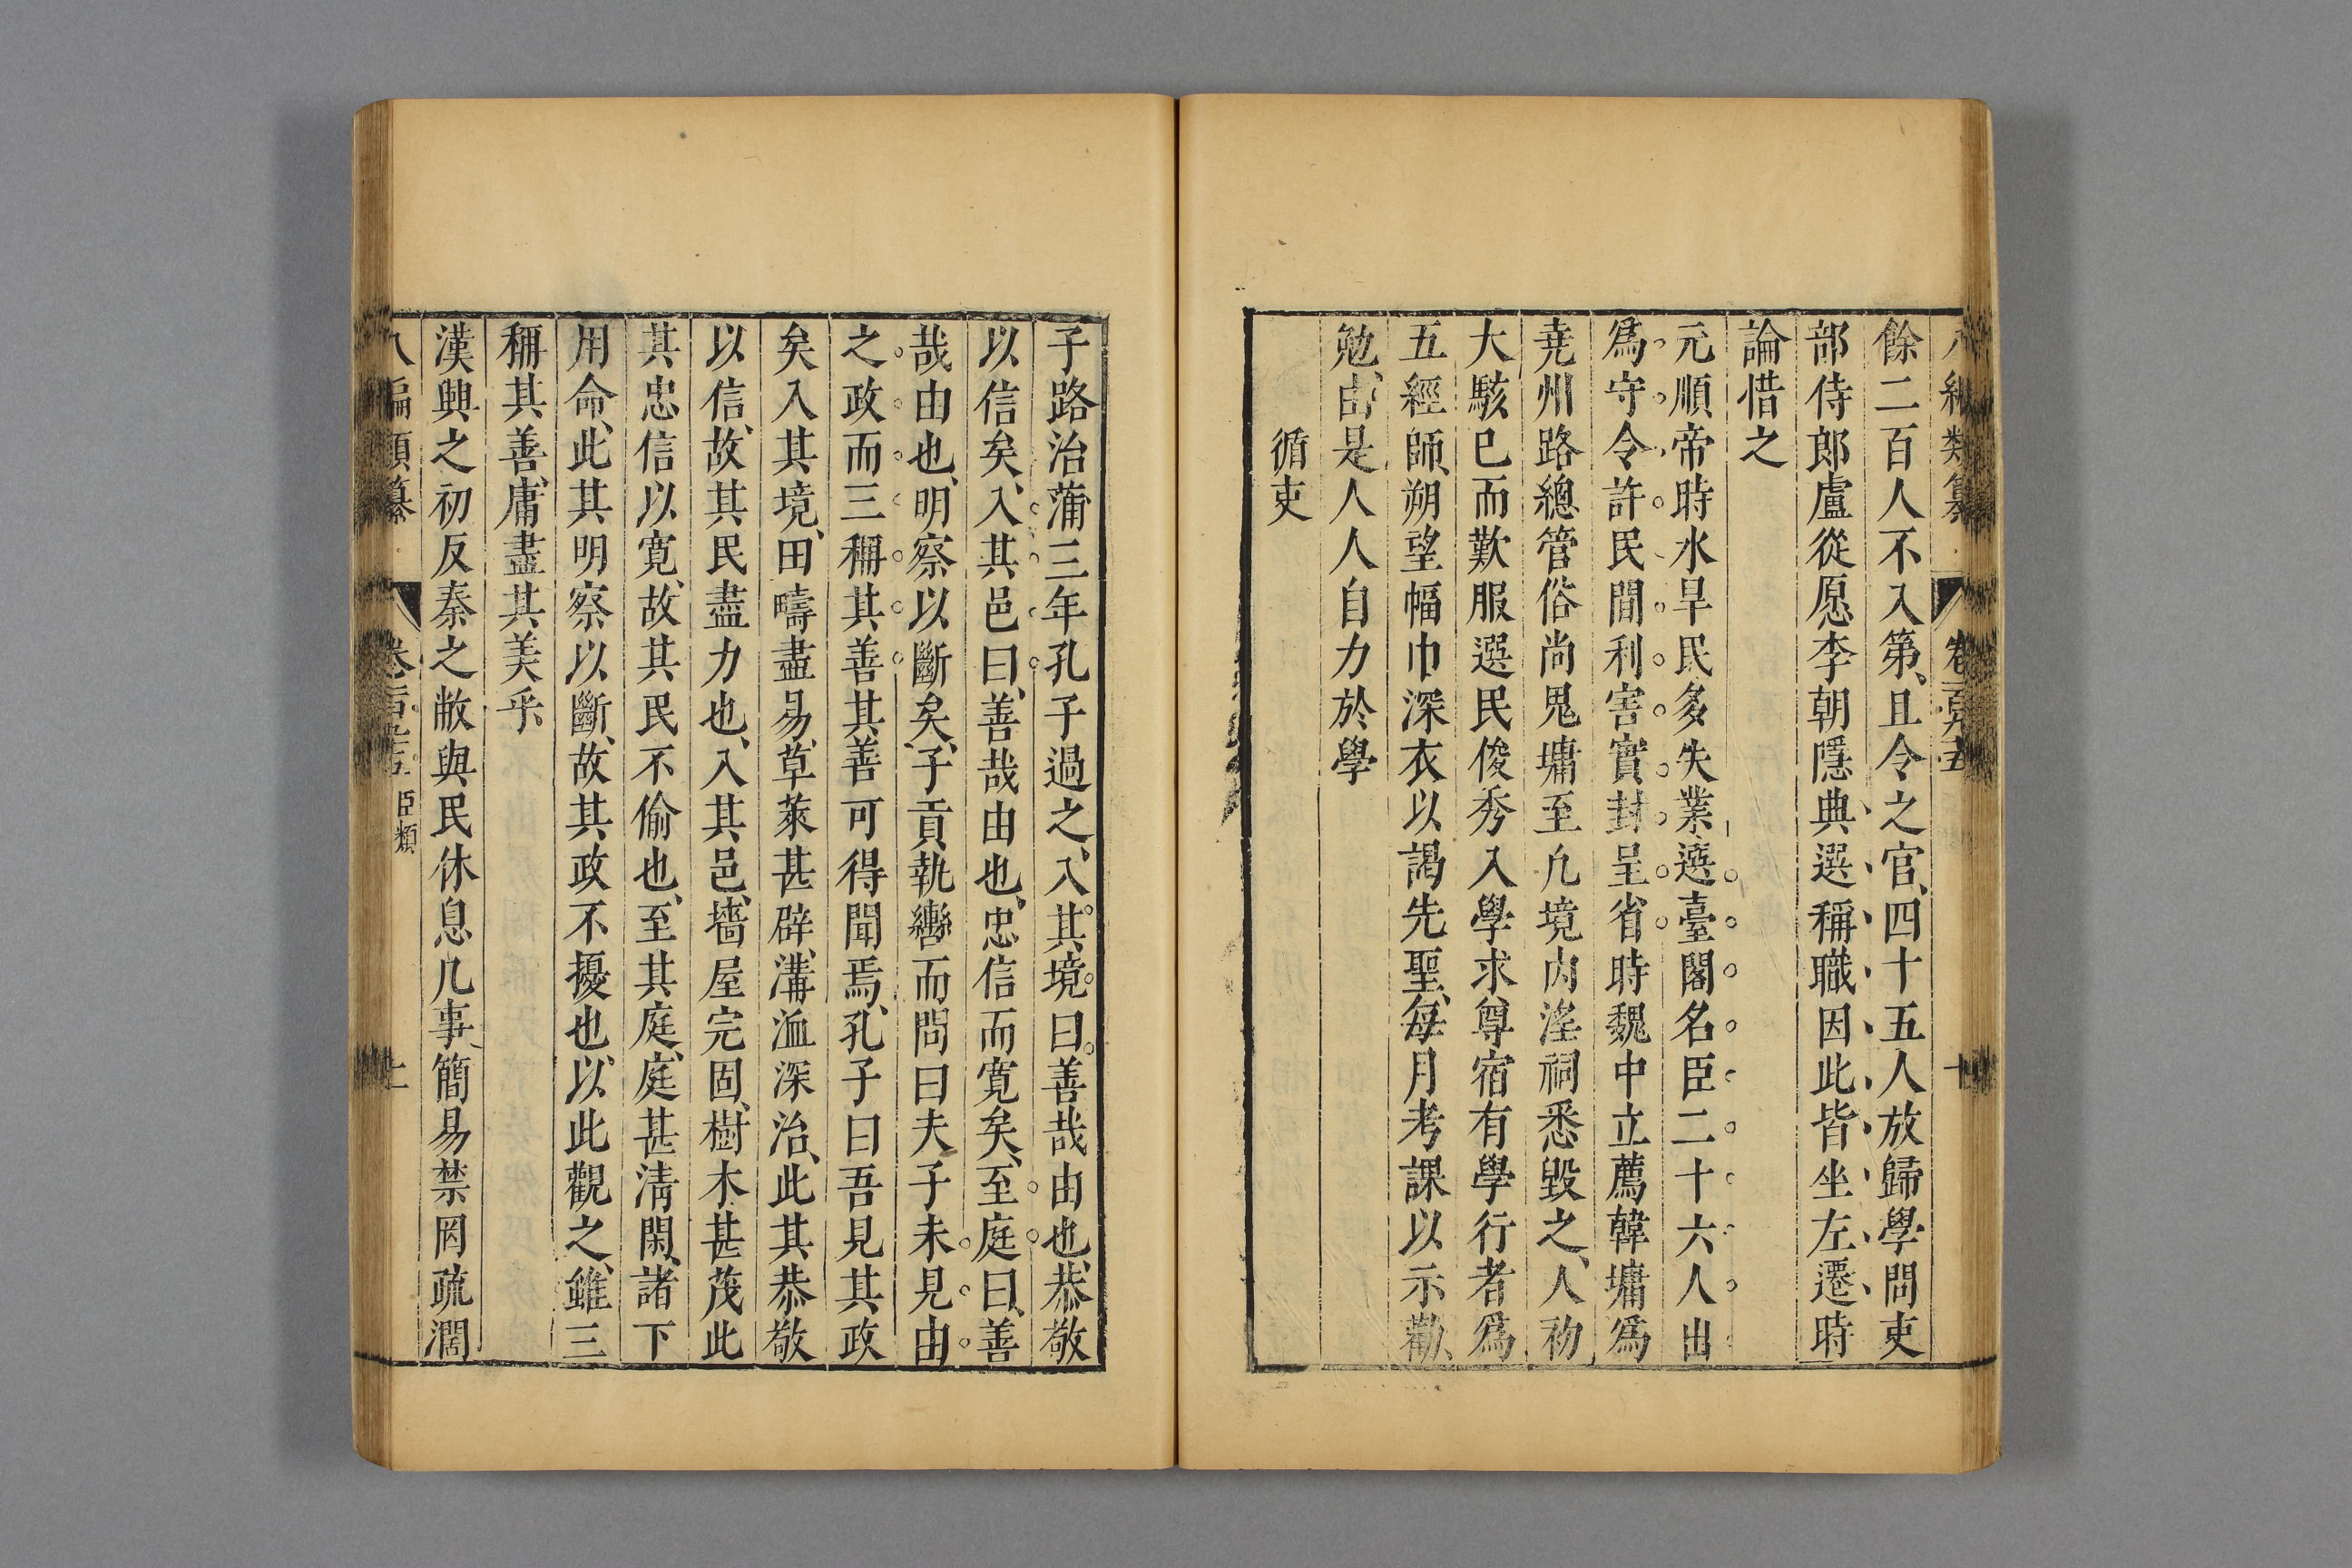 餘二百人不入第、且令之官、四十五人放歸學問吏
部侍郎盧從愿李朝隱典選稱職因此皆坐左遷時
論惜之
元順帝時水旱民多失業選臺閣名臣二十六人出
爲守令許民間利害實封呈省時魏中立薦韓墉爲
堯州路總管俗尚鬼墉至凢境内淫祠悉毀之、人初
大駭巳而歎服選民俊秀入學求尊宿有學行者爲
五經師、朔望幅巾深衣以謁先聖、每月考課以示勸
勉、由是人人自力於學
循吏
子路治蒲三年孔子過之、入其境曰善哉由也、恭敬
以信矣、入其邑曰、善哉由也、忠信而寬矣、至庭曰、善
哉由也、明察以斷矣、子貢執轡而問曰夫子未見由
之政而三稱其善其善可得聞焉、孔子曰吾見其政
矣入其境、田疇盡易、草萊甚辟、溝洫深治、此其恭敬
以信、故其民盡力也、入其邑、墻屋完固、樹木甚茂此
其忠信以寬、故其民不偷也、至其庭、庭甚淸閑、諸下
用命、此其明察以斷、故其政不擾也、以此觀之、雖三
稱其善、庸盡其美乎、
漢興之初反秦之敝與民休息凢事簡易禁罔疏濶
八編類纂 臣類